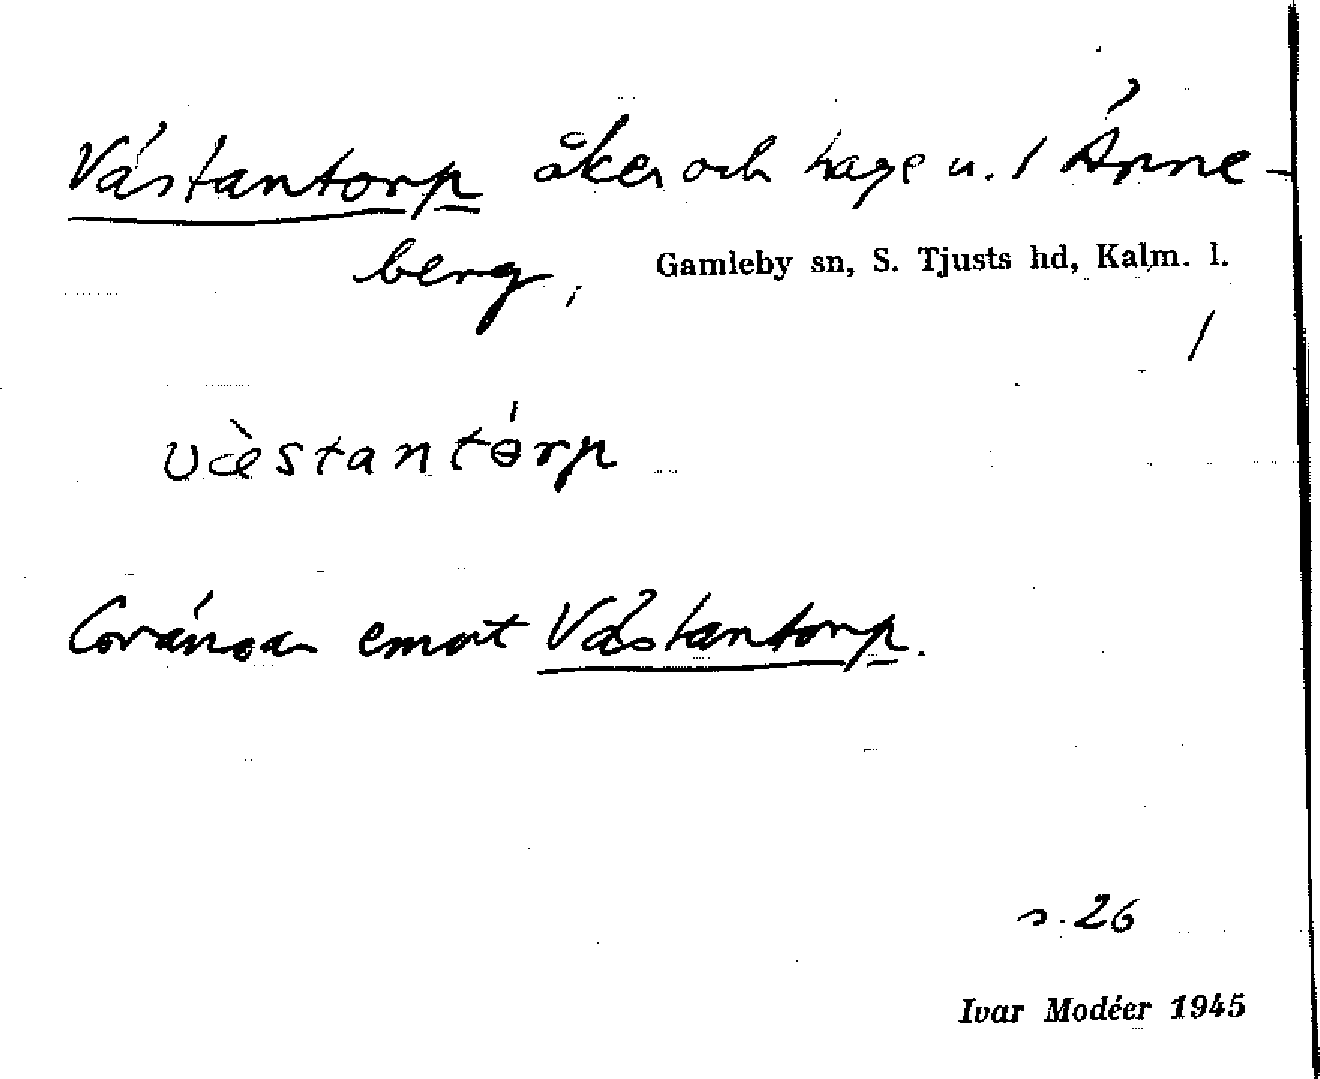 Västantorp åker och hage u. / Änne-
berg, Gamleby sn, S. Tjusts hd, Kalm. l.
/
væ̀stantɵ́rp
Gränsar emot Västantorp.
s. 26
Ivar Modéer 1945